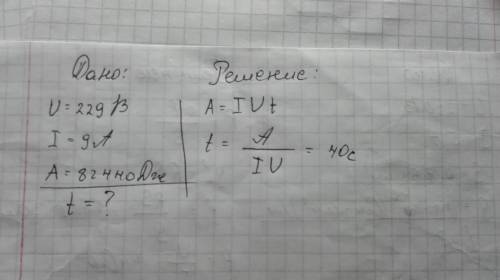 Дано:
U = 229 В
I = 9 А
A = 82440 Дж
t = ?
Решение:
A = I U t
t = A / IU = 40с